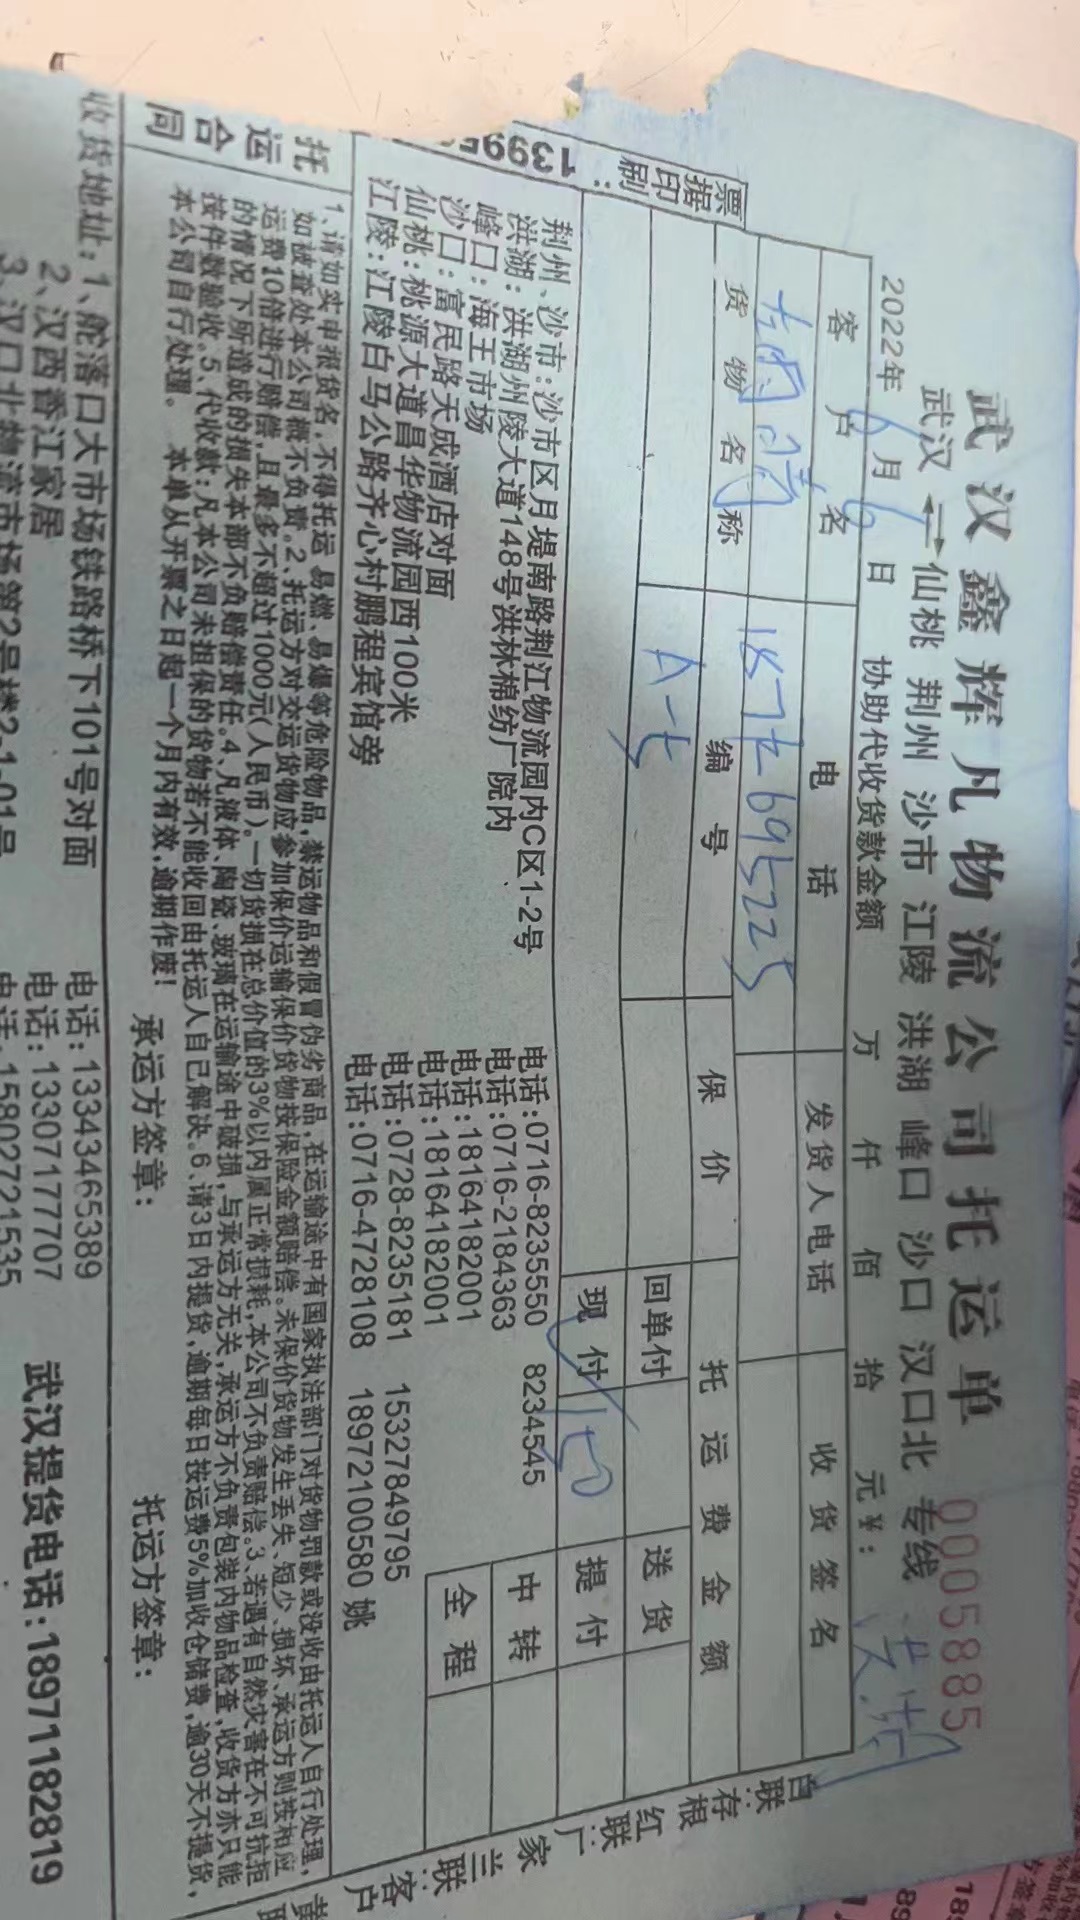 武汉鑫辉凡物流公司托运单
0005885
武汉 ⇄ 仙桃 荆州 沙市 江陵 洪湖 峰口 沙口 汉口北 专线
2022年6月6日 协助代收货款金额 万 仟 佰 拾 元¥：
客户名 电话 发货人电话 收货签名
货物名称 编号 保价 托运费金额
回单付 送货
现付 150 提付
中转
全程
荆州、沙市：沙市区月堤南路荆江物流园内C区1-2号 电话：0716-8235550 8234545
洪湖：洪湖州陵大道148号洪林棉纺厂院内 电话：0716-2184363
峰口：海王市场 电话：18164182001
沙口：富民路天成酒店对面 电话：18164182001
仙桃：桃源大道昌华物流园西100米 电话：0728-8235181 15327849795
江陵：江陵白马公路齐心村鹏程宾馆旁 电话：0716-4728108 18972100580 姚
托运合同
1、请如实申报货名，不得托运 易燃、易爆等危险物品，禁运物品和假冒伪劣商品，在运输途中有国家执法部门对货物罚款或没收由托运人自行处理，
如被查处本公司概不负责。2、托运方对交运货物应参加保价运输保价货物按保险金额赔偿。未保价货物发生丢失、短少、损坏、承运方则按相应
运费10倍进行赔偿，且最多不超过1000元(人民币)。一切货损在总价值的3%以内属正常损耗，本公司不负责赔偿。3、若遇有自然灾害在不可抗拒
的情况下所造成的损失本部不负赔偿责任。4、凡液体、陶瓷、玻璃在运输途中破损，与承运方无关，承运方不负责包装内物品检查，收货方亦只能
按件数验收。5、代收款：凡本公司未担保的货物若不能收回由托运人自己解决。6、请3日内提货，逾期每日按运费5%加收仓储费，逾30天不提货，
本公司自行处理。 本单从开票之日起一个月内有效，逾期作废！
承运方签章： 托运方签章：
收货地址：1、舵落口大市场铁路桥下101号对面 电话：13343465389
2、汉西香江家居 电话：13307177707
3、汉口北物流市场第2号楼2-1-01号 电话：15802721535
武汉提货电话：18971182819
票据印刷：
白联：存根 红联：厂家 兰联：客户